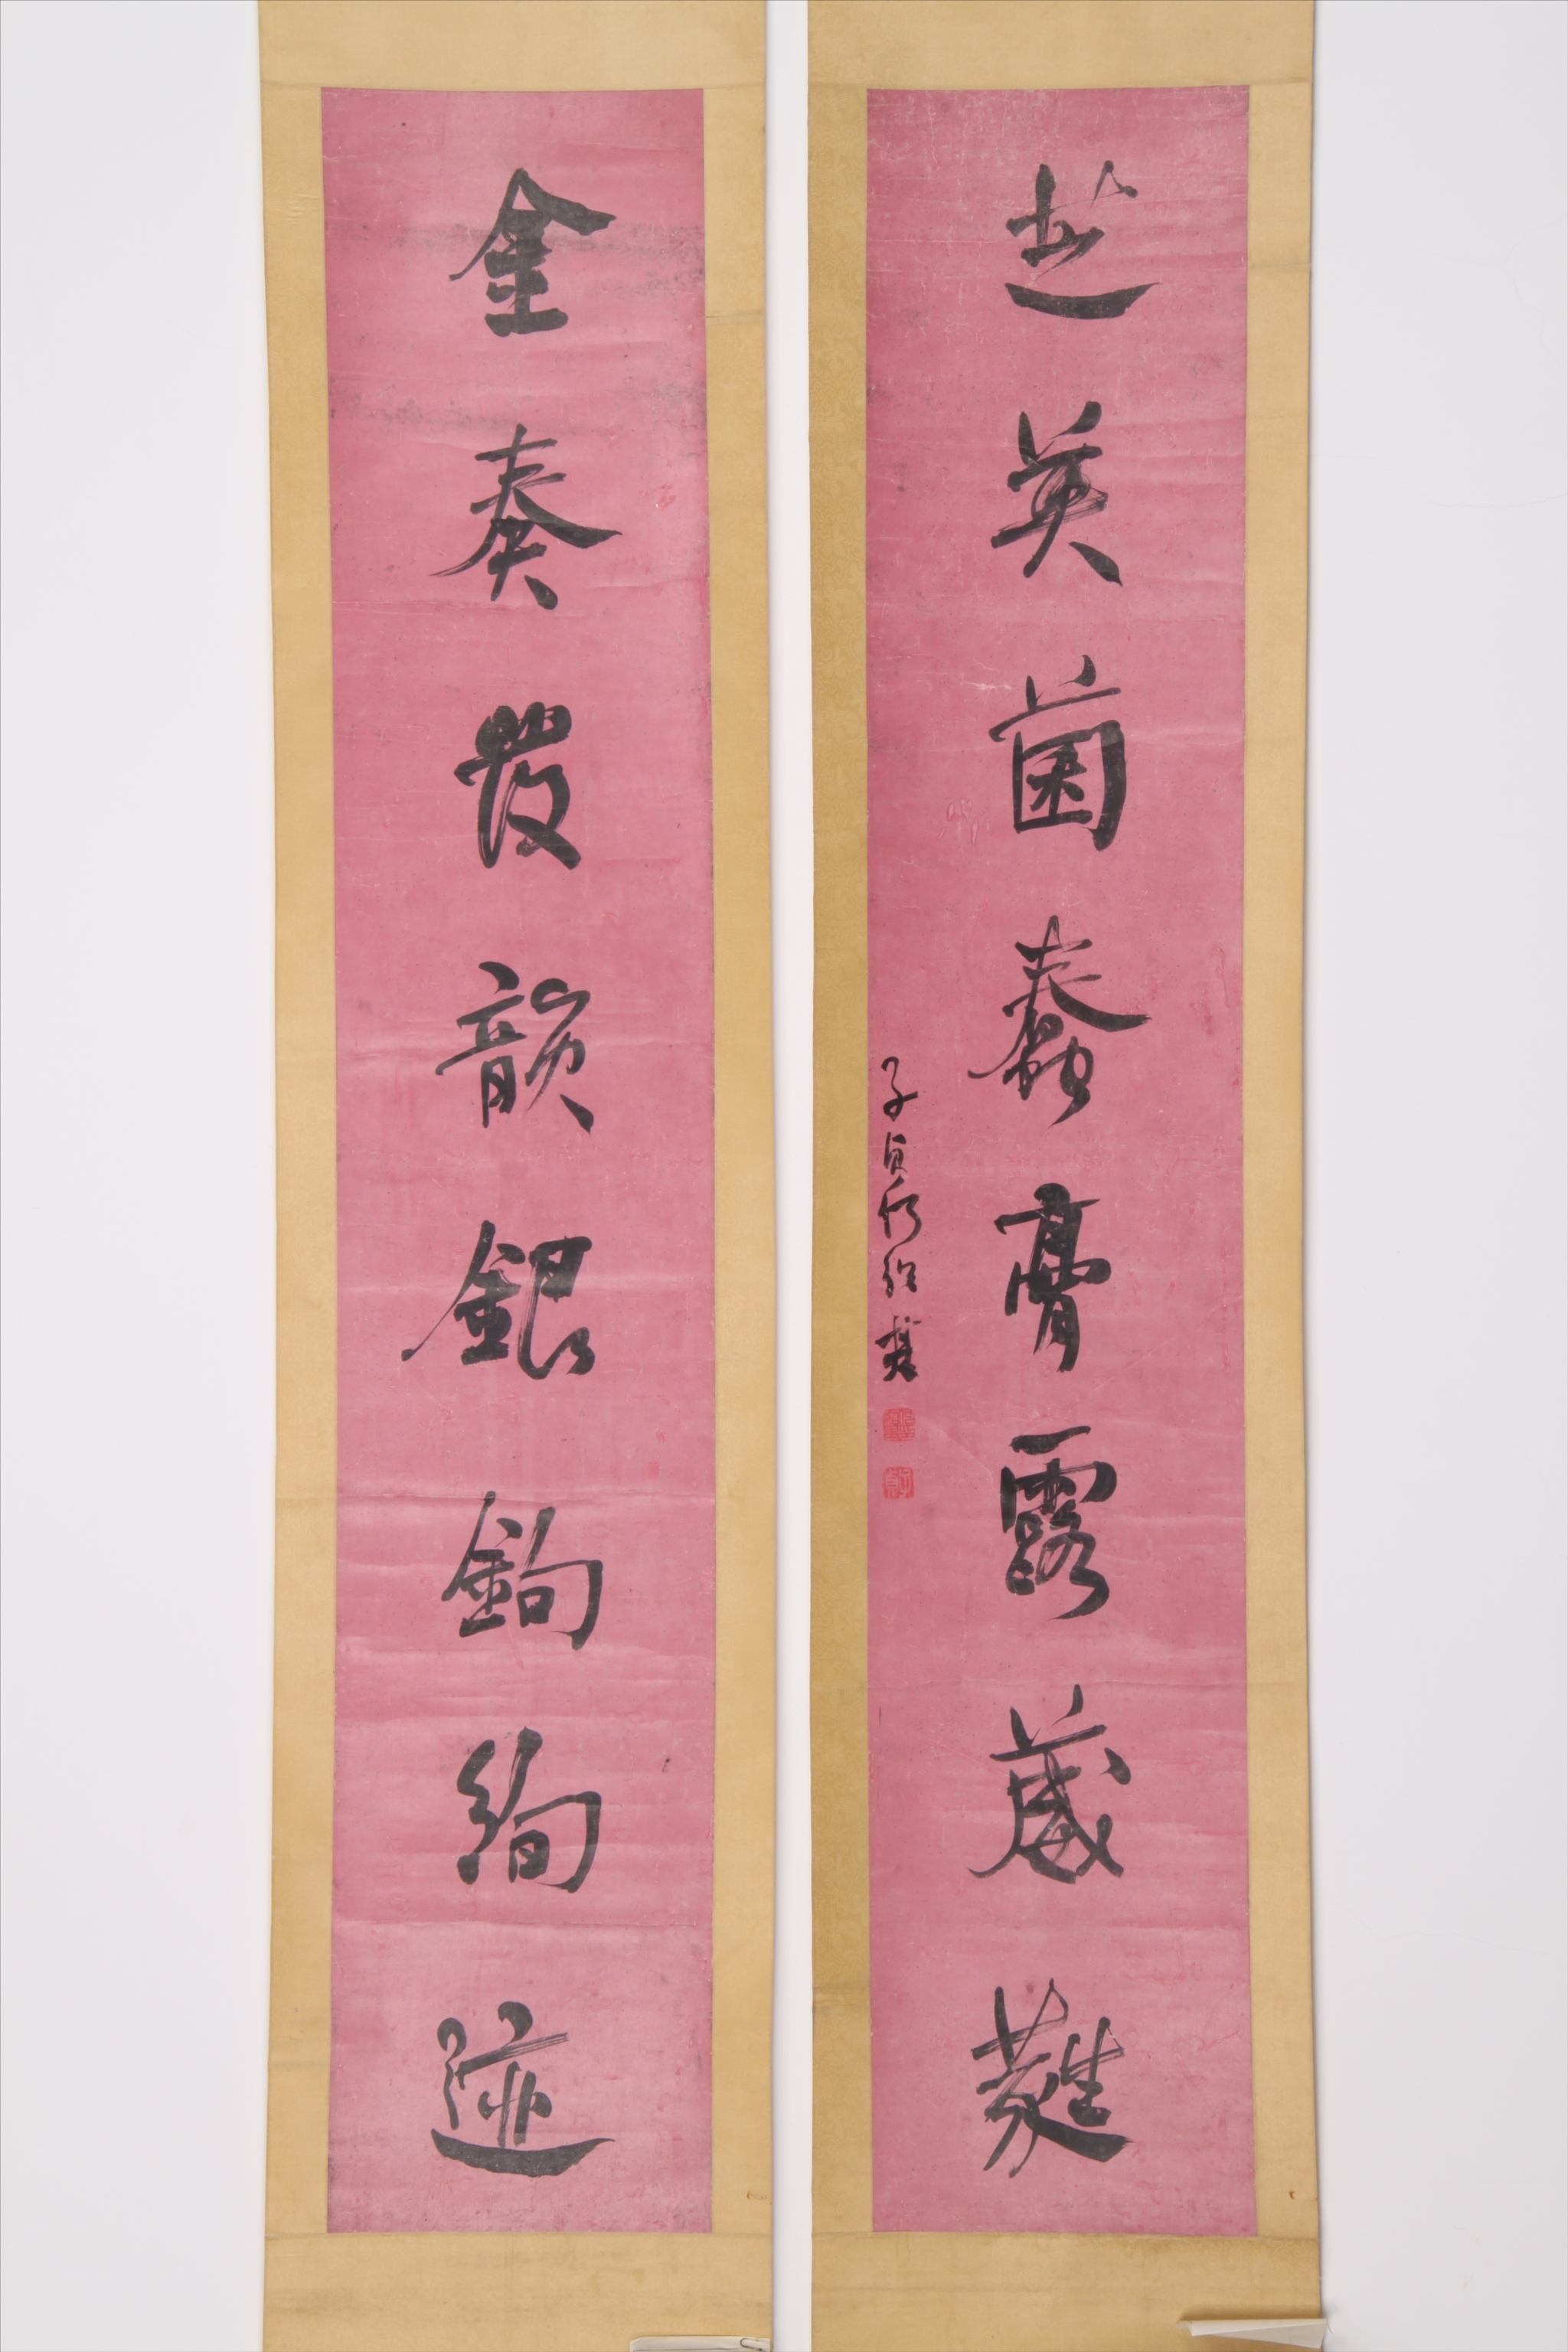 金奏發韻銀鉤絢迹
芝英菌蠢膏露葳蕤
子貞何紹基
子貞